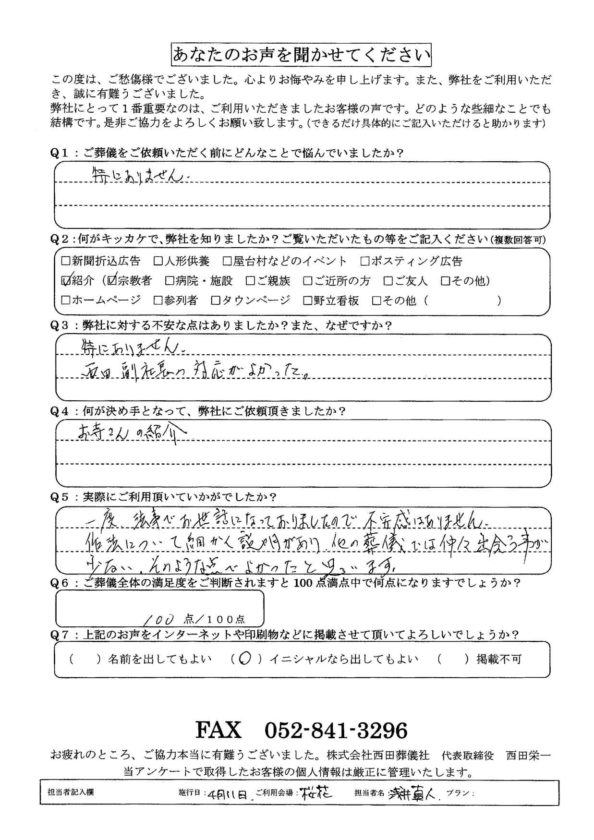 あなたのお声を聞かせてください
この度は、ご愁傷様でございました。心よりお悔やみを申し上げます。また、弊社をご利用いただ
き、誠に有難うございました。
弊社にとって１番重要なのは、ご利用いただきましたお客様の声です。どのような些細なことでも
結構です。是非ご協力をよろしくお願い致します。(できるだけ具体的にご記入いただけると助かります)
Q１：ご葬儀をご依頼いただく前にどんなことで悩んでいましたか？
特にありません。
Q２:何がキッカケで、弊社を知りましたか？ご覧いただいたもの等をご記入ください(複数回答可)
□新聞折込広告 □人形供養 □屋台村などのイベント □ポスティング広告
☑紹介（☑宗教者 □病院・施設 □ご親族 □ご近所の方 □ご友人 □その他）
□ホームページ □参列者 □タウンページ □野立看板 □その他（ ）
Q３：弊社に対する不安な点はありましたか？また、なぜですか？
特にありません。
西田副社長の対応がよかった。
Q４：何が決め手となって、弊社にご依頼頂きましたか？
お寺さんの紹介
Q５：実際にご利用頂いていかがでしたか？
一度、法事でお世話になっておりましたので不安感はありません。
作法について細かく説明があり、他の葬儀では仲々出会う事が
少ない。そのような点でよかったと思います。
Q６：ご葬儀全体の満足度をご判断されますと 100 点満点中で何点になりますでしょうか？
100 点/１００点
Q７：上記のお声をインターネットや印刷物などに掲載させて頂いてよろしいでしょうか？
（ ）名前を出してもよい （○）イニシャルなら出してもよい （ ）掲載不可
FAX 052-841-3296
お疲れのところ、ご協力本当に有難うございました。株式会社西田葬儀社 代表取締役 西田栄一
当アンケートで取得したお客様の個人情報は厳正に管理いたします。
担当者記入欄 施行日：4月11日 ご利用会場：桜花 担当者名：浅井真人 プラン：